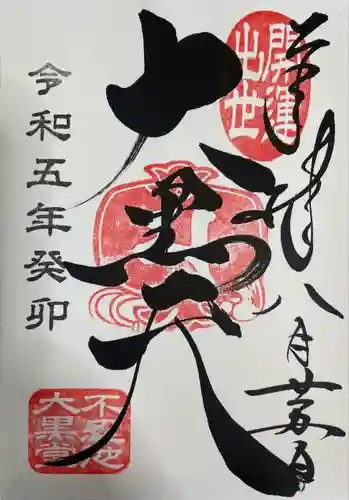 奉拝
八月 日
開運
出世
大黒天
令和五年癸卯
不忍池
大黒堂